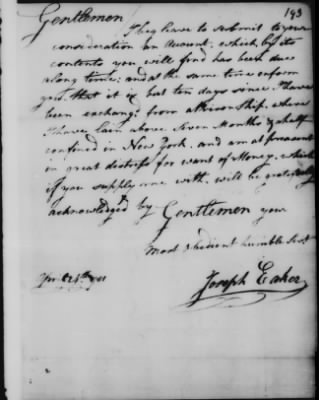 193
Gentlemen
I beg leave to submit to your
consideration an Account, which, by its
contents you will find has been due
a long time; and at the same time inform
you, that it is but ten days since I have
been exchang'd from a Prison Ship, where
I have lain above Seven Months & a half
confined in New York. and am at present
in great distress for want of Money. which
if you supply me with. will be gratefully
acknowledged by Gentlemen your
most obedient humble Servt
Joseph Eaker